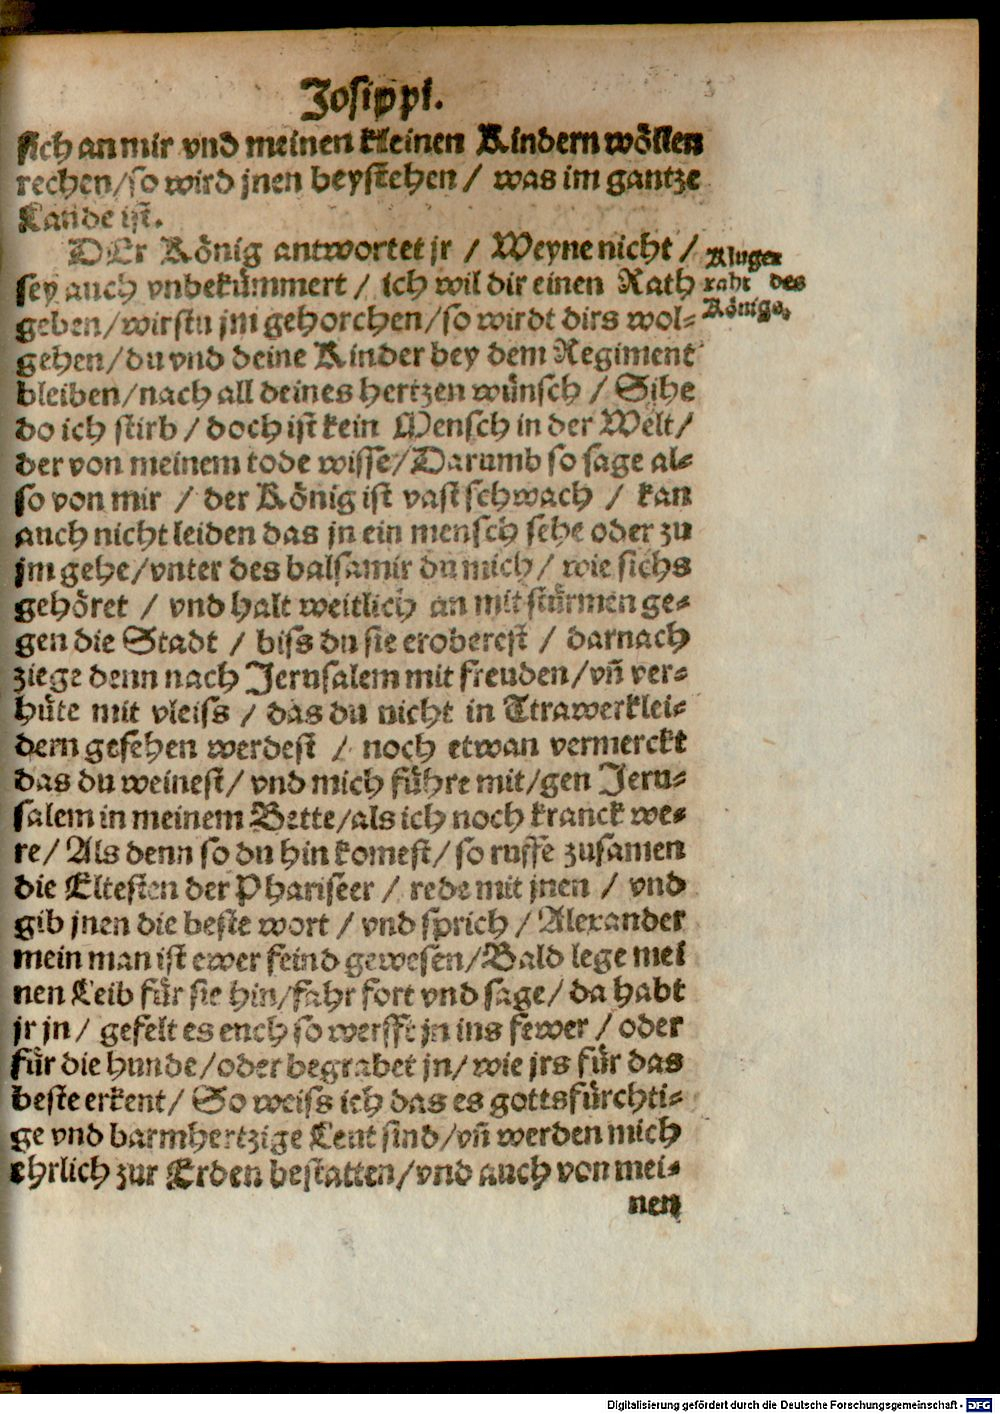 Josippi.
sich an mir vnd meinen kleinen Kindern wöllen
rechen/so wird jnen beystehen / was im gantze
Lande ist.
DEr König antwortet jr / Weyne nicht /
sey auch vnbekümmert / ich wil dir einen Rath
geben/wirstu jm gehorchen/so wirdt dirs wol-
gehen/du vnd deine Kinder bey dem Regiment
bleiben/nach all deines hertzen wünsch / Sihe
do ich stirb / doch ist kein Mensch in der Welt/
der von meinem tode wisse/Darumb so sage al-
so von mir / der König ist vast schwach / kan
auch nicht leiden das jn ein mensch sehe oder zu
jm gehe/vnter des balsamir du mich/ wie sichs
gehöret / vnd halt weitlich an mit stürmen ge-
gen die Stadt / biss du sie eroberest / darnach
ziege denn nach Jerusalem mit freuden/vñ ver-
hüte mit vleiss / das du nicht in Ttrawerklei-
dern gesehen werdest / noch etwan vermerckt
das du weinest/ vnd mich führe mit/gen Jeru-
salem in meinem Bette/als ich noch kranck we-
re/ Als denn so du hin komest/so ruffe zusamen
die Eltesten der Phariseer / rede mit jnen / vnd
gib jnen die beste wort / vnd sprich / Alexander
mein man ist ewer feind gewesen/Bald lege mei
nen Leib für sie hin/fahr fort vnd sage/ da habt
jr jn/ gefelt es euch so werfft jn ins fewer / oder
für die hunde/oder begrabet jn/ wie jrs für das
beste erkent/ So weiss ich das es gottsfürchti-
ge vnd barmhertzige Leut sind/vñ werden mich
ehrlich zur Erden bestatten/vnd auch von mei-
nen
Kluger
raht des
Königs.
Digitalisierung gefördert durch die Deutsche Forschungsgemeinschaft - DFG